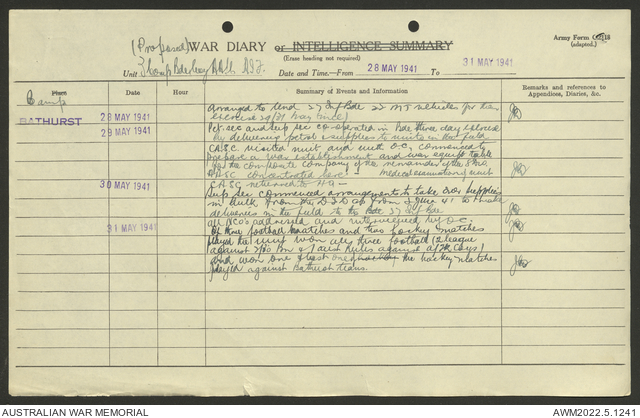 (Proposed) WAR DIARY or INTELLIGENCE SUMMARY
Army Form C2118
(adapted.)
(Erase heading not required)
Unit 3 Comp AASC AIF.
Date and Time—From 28 MAY 1941 To 31 MAY 1941
Place Date Hour Summary of Events and Information Remarks and references to Appendices, Diaries, &c.
Camp
BATHURST 28 MAY 1941 Arranged to lend 27 Inf Bde 22 MT vehicles for
exercise 29/31 May (inc)
29 MAY 1941 Pet sec and sup sec co-operated in Bde three day exercise
by delivering petrol & supplies to units in the field
CASC visited unit and with O.C. commenced to
prepare a war establishment and war equipt table
for the composite company of the remainder of the
AASC concentrated here - medical ammunition unit
30 MAY 1941 CASC returned to HQ -
Sup sec commenced arrangements to take over supplies
in bulk from the from June 41 to make
deliveries in the field to the Bde 27 Inf Bde
all NCO's addressed and interviewed by O.C.
31 MAY 1941 Of two football matches and two hockey matches
played the unit won three football (2 league
against Bn & 1 aust Rules against
and won one & lost one the hockey matches
played against Bathurst teams.
AUSTRALIAN WAR MEMORIAL
AWM2022.5.1241